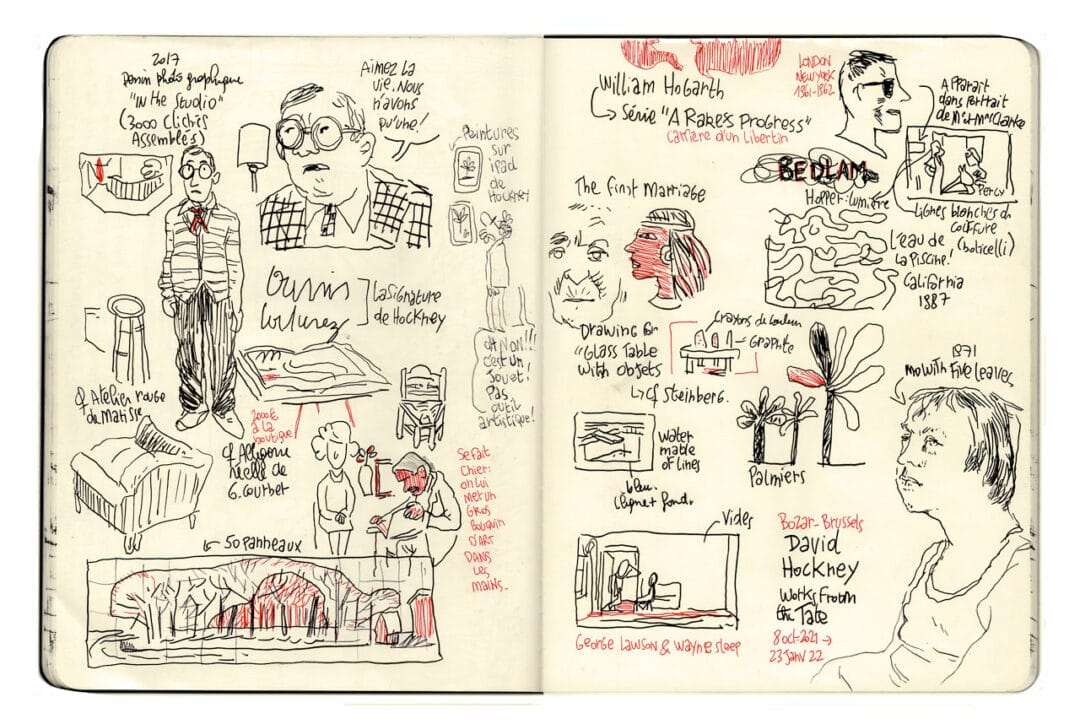 2017
Dessin photographique
"IN the Studio"
(3000 clichés
Assemblés)
Aimez la
vie. Nous
n'avons
qu'une!
Peintures
sur
ipad
de
Hockney
la signature
de Hockney
OH NON!!!
c'est un
jouet!
Pas
outil
artistique!
cf Atelier rouge
du Matisse
2000€
à la
boutique
réelle de
G. Courbet
Se fait
chier:
on lui
met un
GROS
Bouquin
D'ART
DANS
Les
mains..
50 panneaux
William Hogarth
Série "A Rake's Progress"
Carrière d'un Libertin
LONDON
NEW YORK
1961-1962
Apparait
dans portrait
de Mr et Mrs Clarke
Percy
BEDLAM
Hopper: lumière
Lignes blanches du
coiffure
(boticelli)
The First Marriage
L'eau de
la Piscine!
California
1887
Drawing for
"Glass Table
with objets
Crayons de couleur
Graphite
cf Steinberg.
1971
Mo with Five leaves
water
made
of lines
bleu.
Palmiers
Vides
George Lawson & Wayne Sleep
Bozar-Brussels
David
Hockney
Works from
the Tate
8 oct-2021 →
23 janv 22